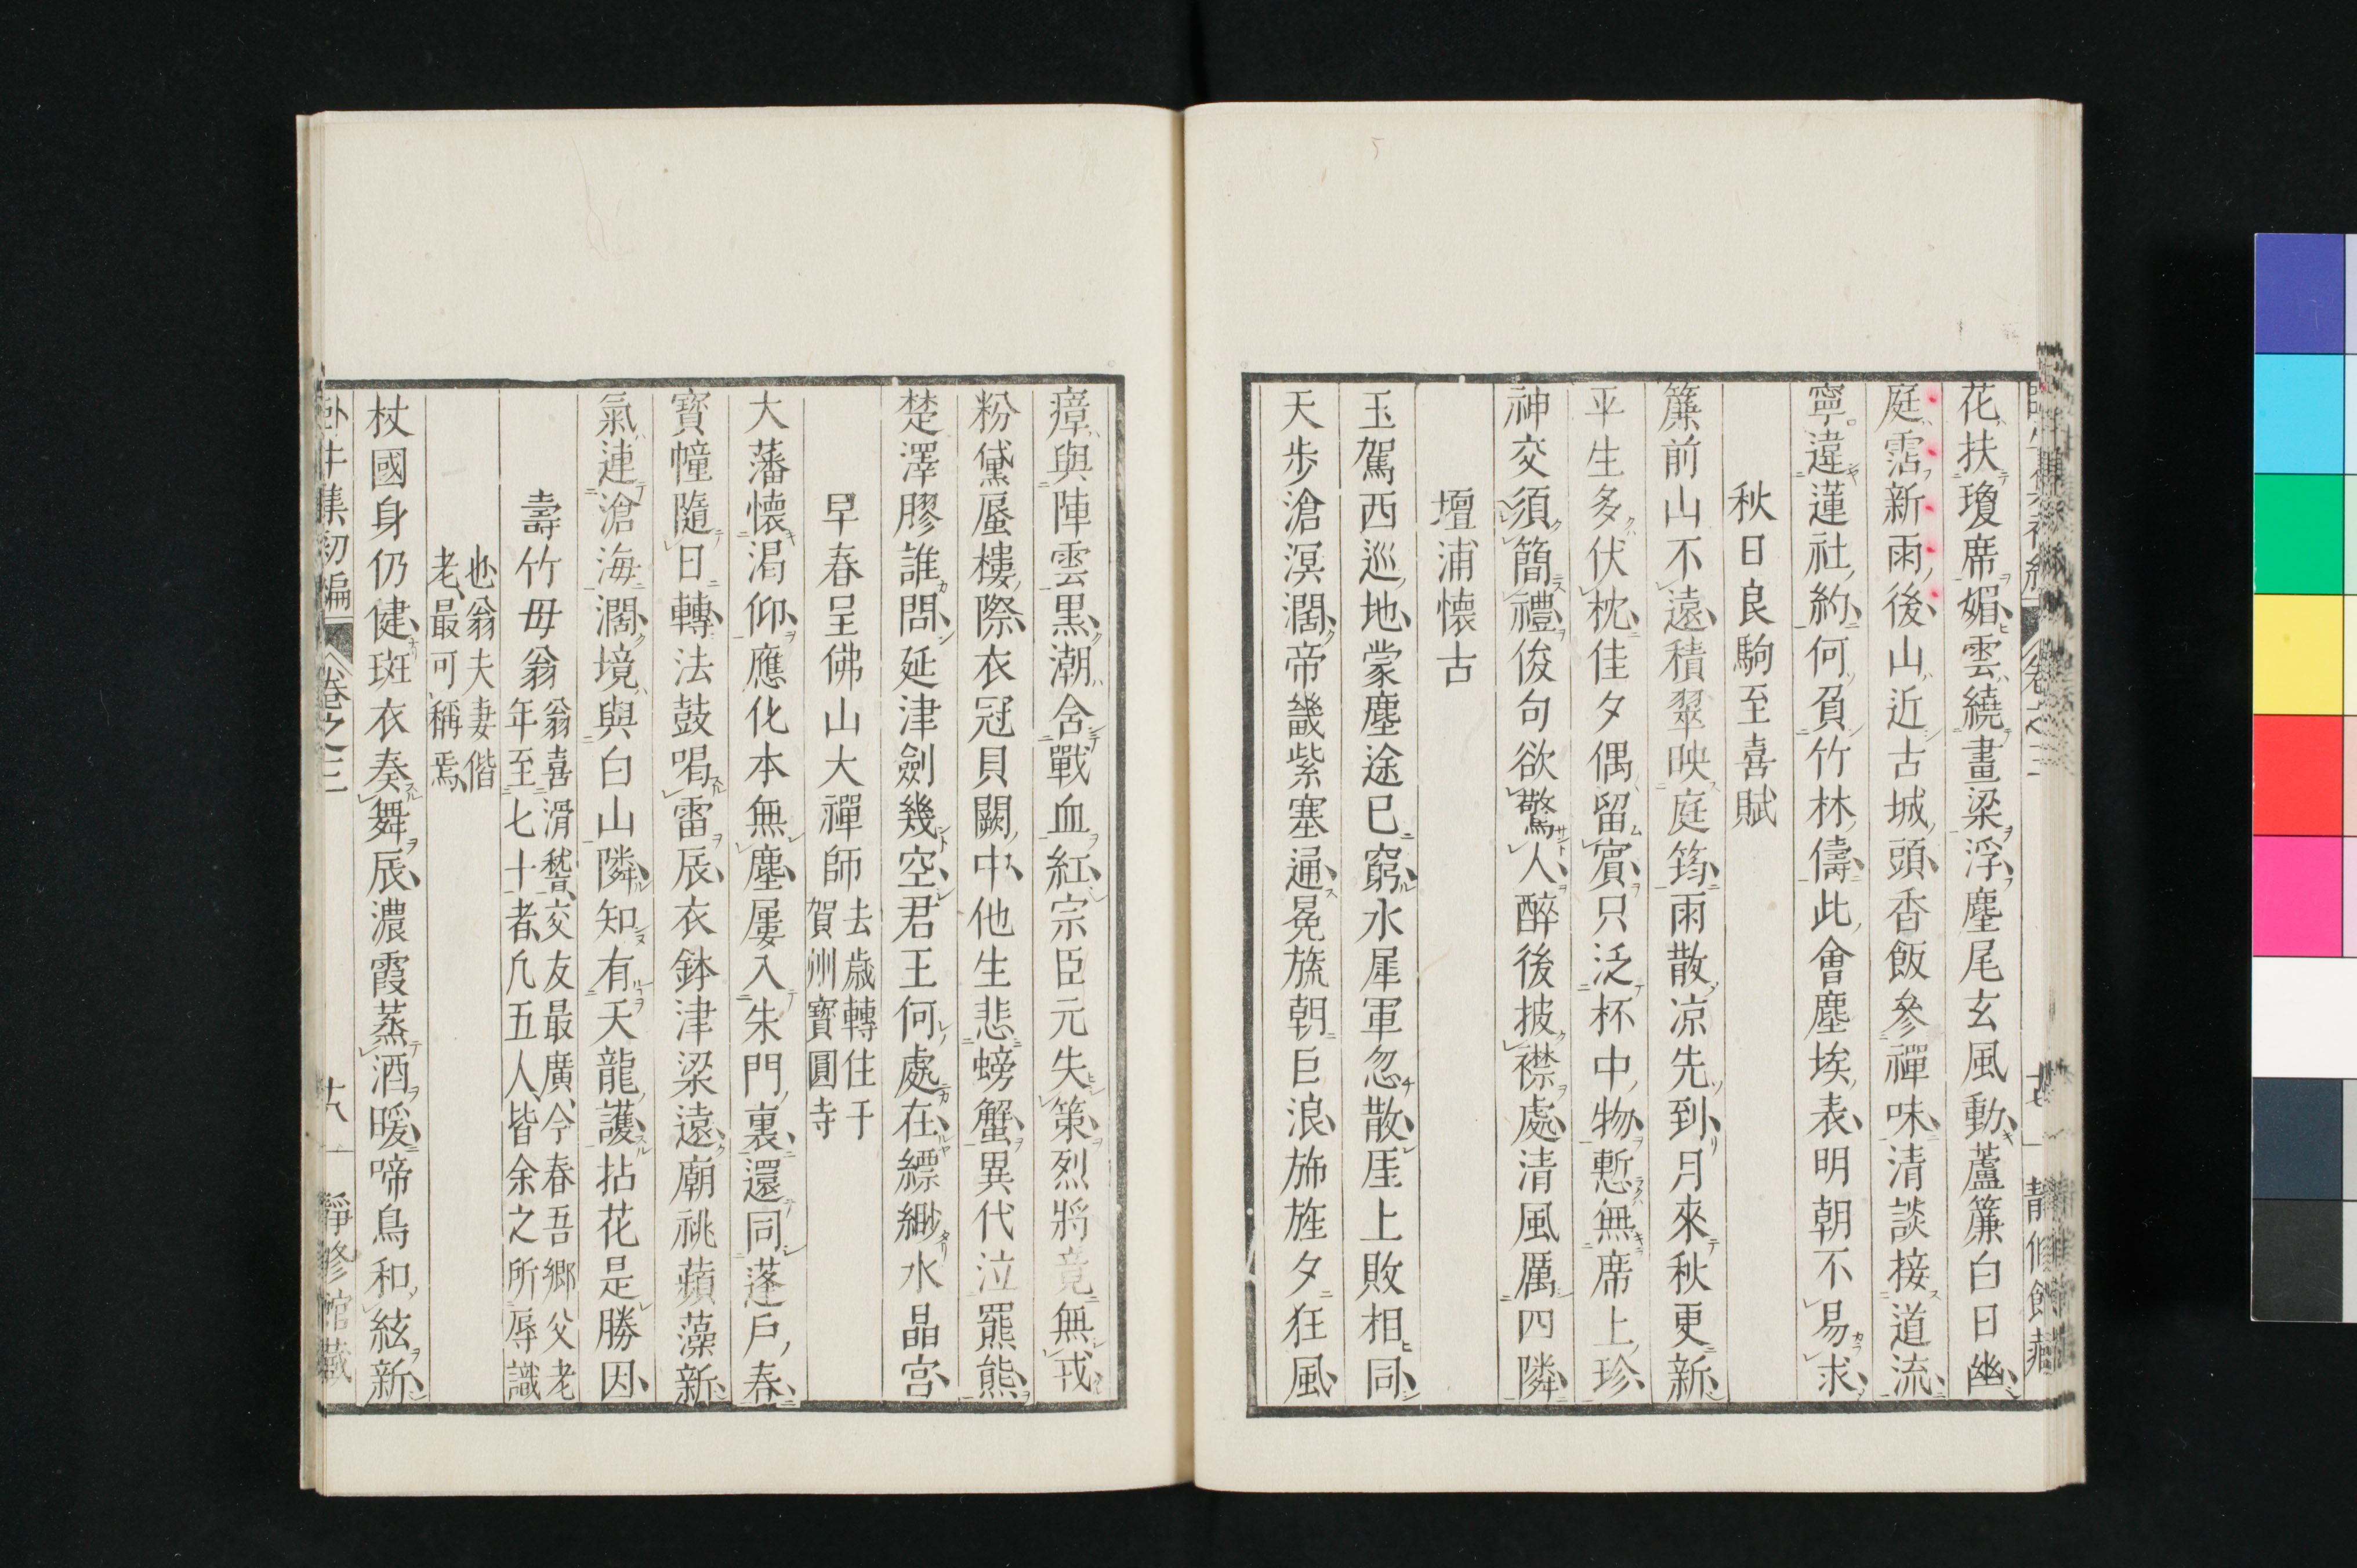 花扶瓊席媚雲繞畫梁浮塵尾玄風動蘆簾白日幽
庭霑新雨後山近古城頭香飯參禪味清談接道流
寧違蓮社約何負竹林儔此會塵埃表明朝不易求
秋日良駒至喜賦
簾前山不遠積翠映庭筠雨散凉先到月來秋更新
平生多伏枕佳夕偶留賓只泛杯中物慙無席上珍
神交須簡禮俊句欲驚人醉後披襟處清風厲四隣
壇浦懷古
玉駕西巡地蒙塵途已窮水犀軍忽散厓上敗相同
天步滄溟濶帝畿紫塞通冕旒朝巨浪斾旌夕狂風
瘴與陣雲黒潮舍戰血紅宗臣元失策烈將竟無戎
粉黛蜃樓際衣冠貝闕中他生悲螃蟹異代泣羆熊
楚澤膠誰問延津劍幾空君王何處在縹緲水晶宮
早春呈佛山大禪師去歳轉住于
賀洲寶圓寺
大藩懷渴仰應化本無塵屢入朱門裏還同蓬戶春
寳幢隨日轉法鼓喝雷辰衣鉢津梁遠廟祧蘋藻新
氣連滄海濶境與白山隣知有天龍護拈花是勝因
壽竹毋翁翁喜滑稽交友最廣今春吾鄉父老
年至七十者凢五人皆余之所辱識
也翁夫妻偕
老最可稱焉
杖國身仍健斑衣奏舞辰濃霞蒸酒暖啼鳥和絃新
臥牛集初編 卷之三 十八 靜修館藏